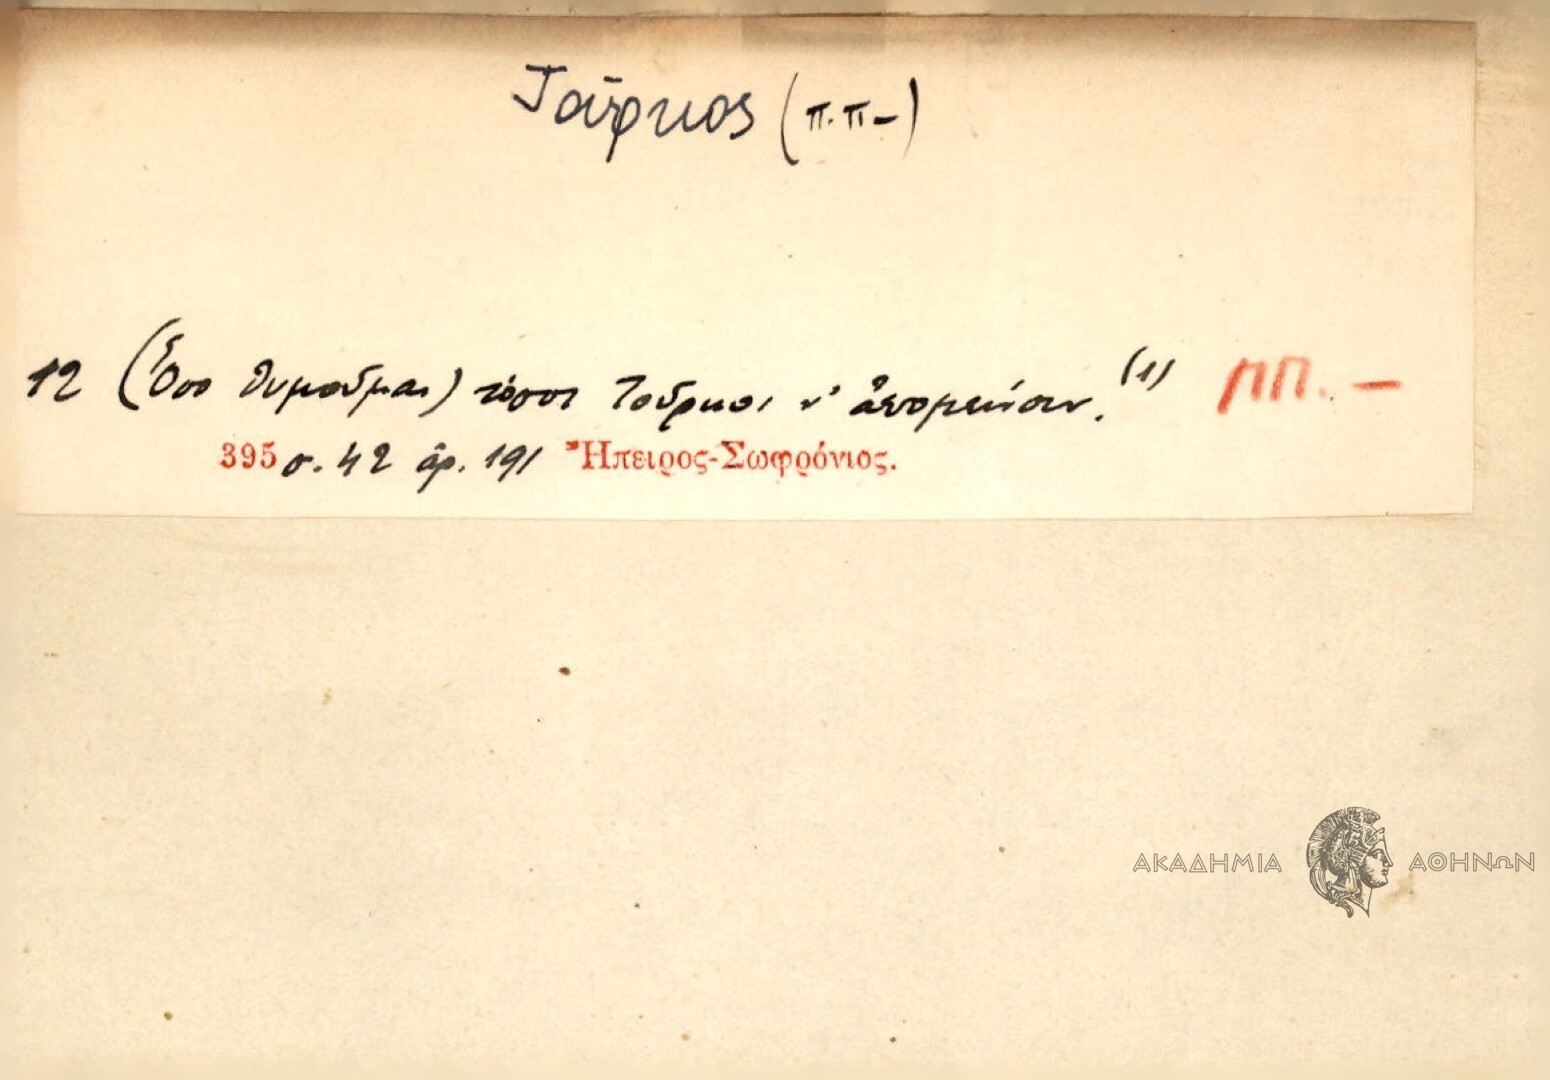 Τοῦρκος (π.π-)
12 (Ὅσο θυμοῦμαι) τόσοι Τοῦρκοι ν' ἀπομείνουν.(1) ΠΠ. –
395 σ. 42 ἀρ. 191 Ἤπειρος-Σωφρόνιος.
ΑΚΑΔΗΜΙΑ ΑΘΗΝΩΝ